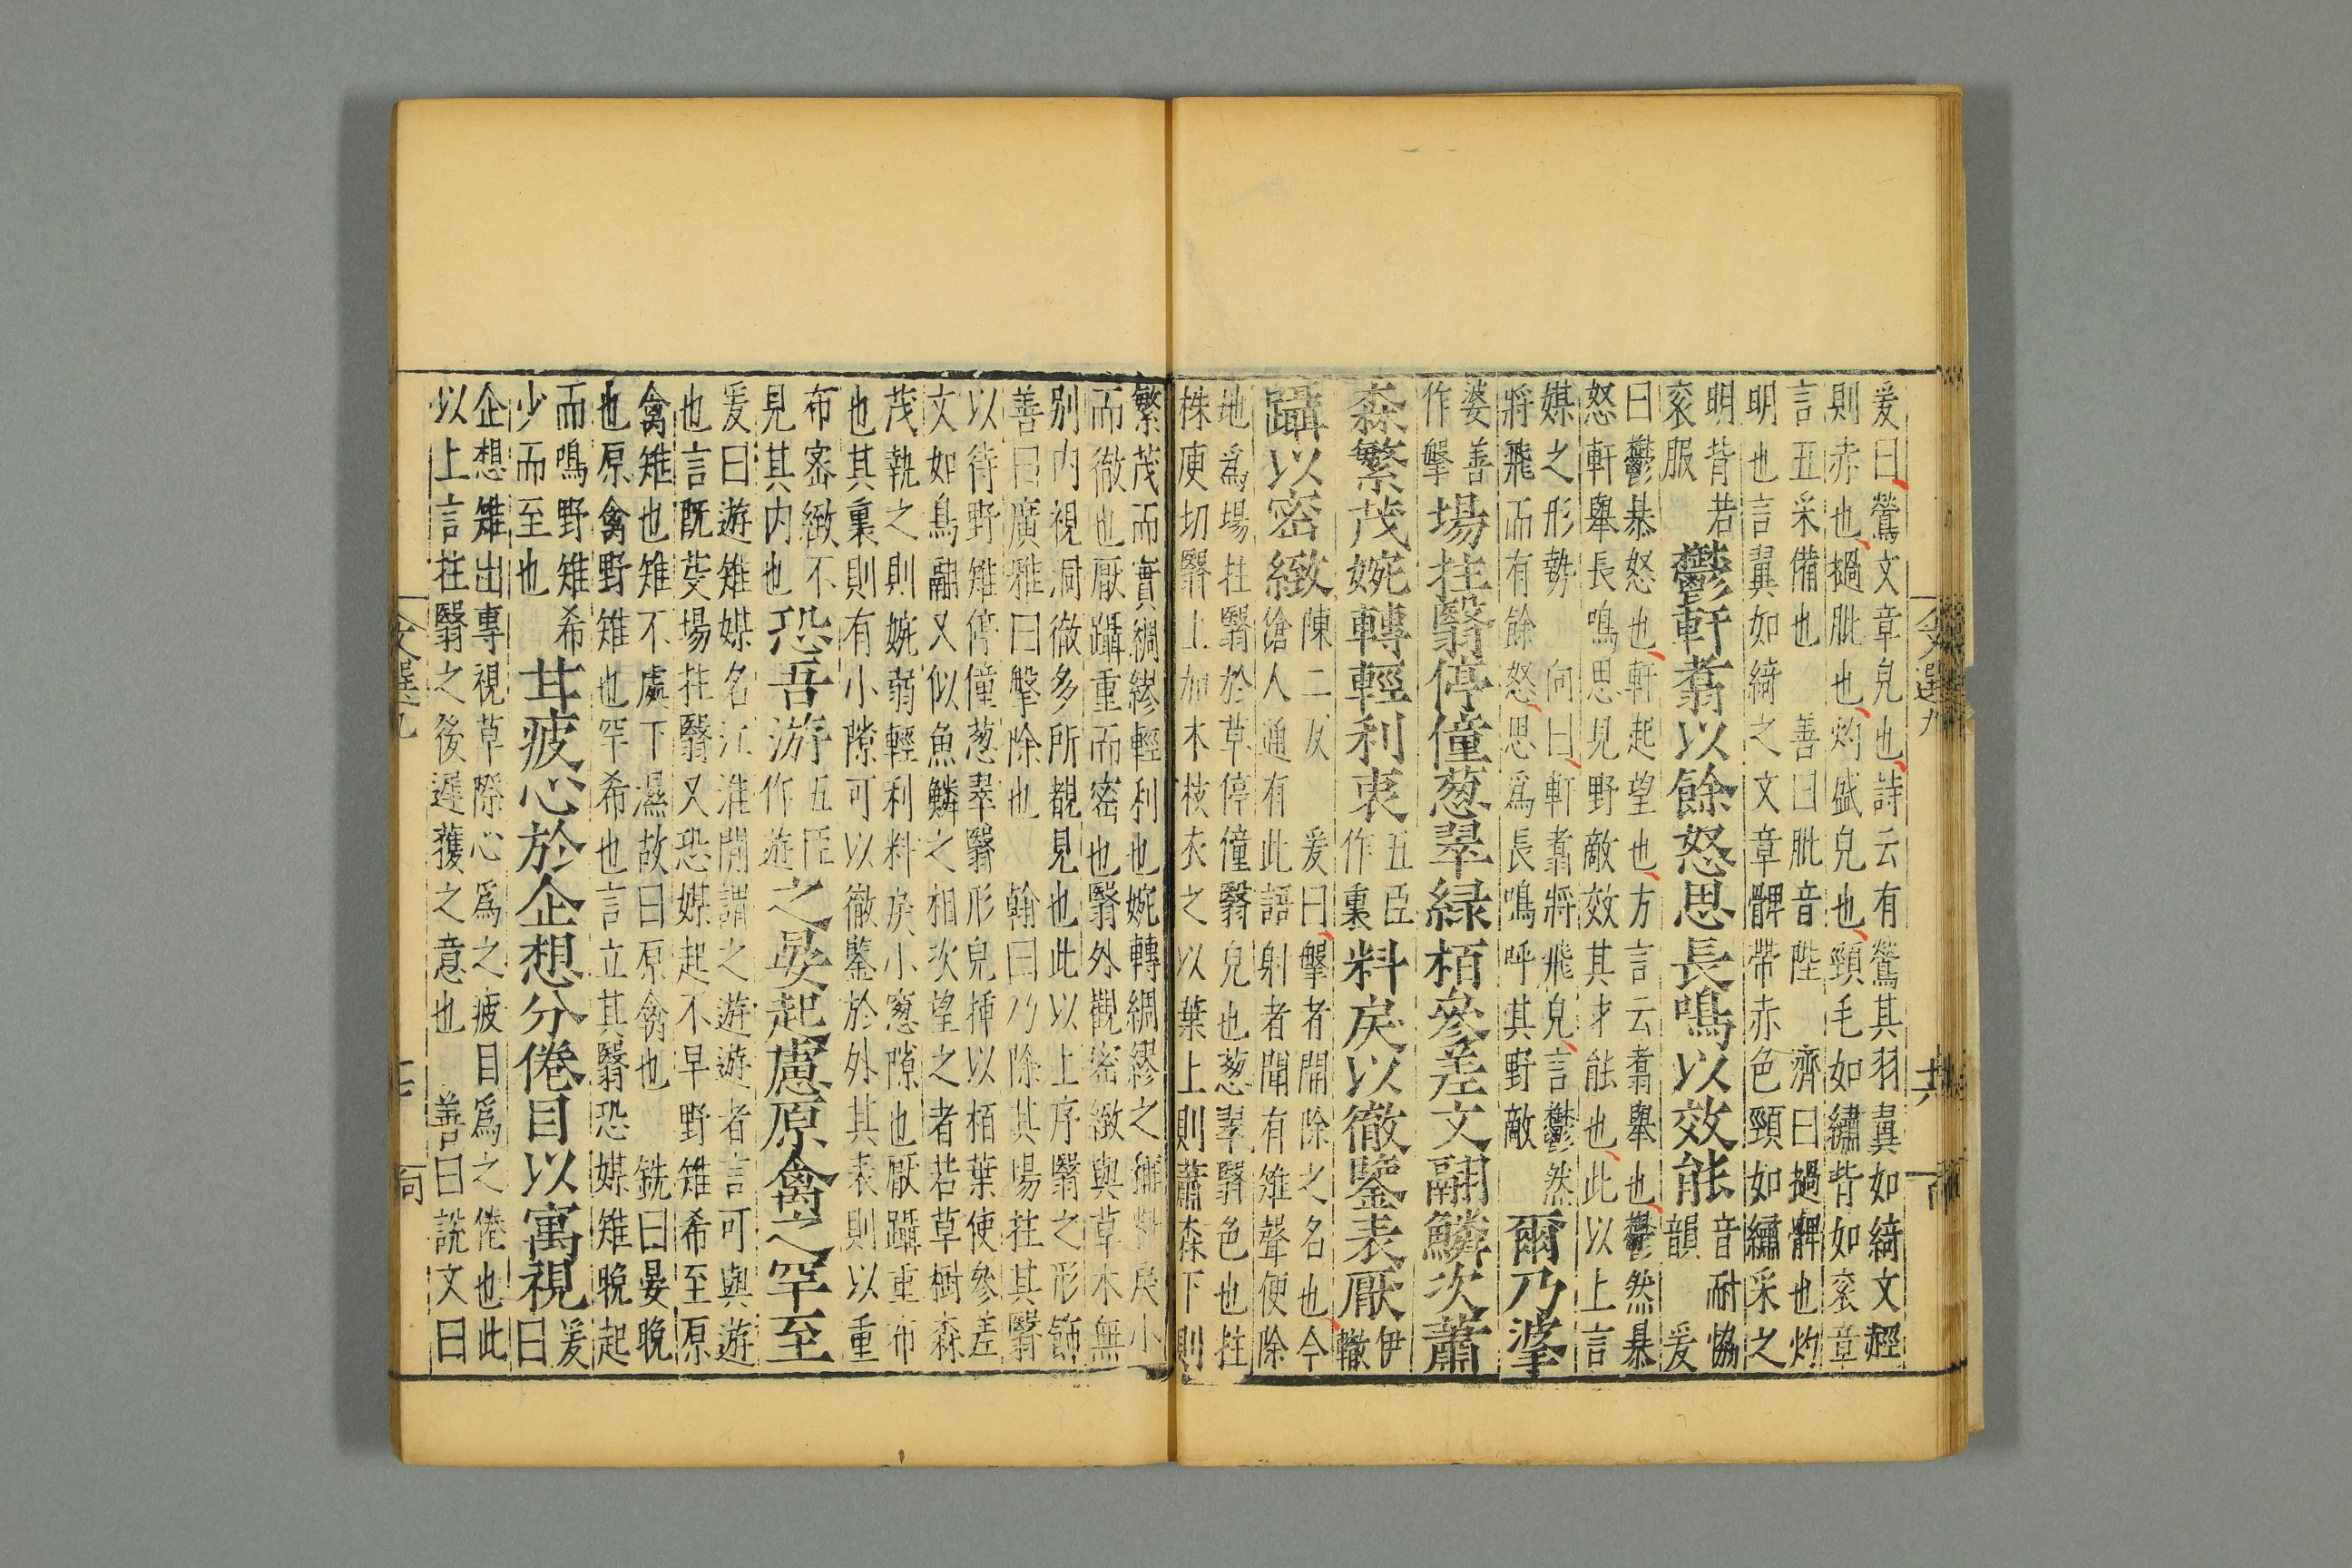 爰曰鶯文章皃也詩云有鶯其羽翼如綺文輕
則赤也撾䏶也灼盛皃也頸毛如繡背如衮章
言五采備也　善曰䏶音陛　濟曰撾髀也灼
明也言翼如綺之文章髀帶赤色頸如繡采之
明背若
衮服
鬱軒翥以餘怒思長鳴以效能
音耐協
韻　爰
曰鬱㬥怒也軒起望也方言云翥舉也鬱然㬥
怒軒舉長鳴思見野敵效其才能也此以上言
媒之形勢　向曰軒翥將飛皃言鬱然
將飛而有餘怒思爲長鳴呼其野敵
爾乃㨇
婆善
作擊
場拄翳停僮葱翠緑栢參差文翮鱗次蕭
森繁茂婉轉輕利衷
五臣
作裏
料戾以徹鑒表厭
伊
轍
躡以密緻
陳二反　爰曰擊者開除之名也今
傖人通有此語射者聞有雉聲便除
地爲場拄翳於草停僮翳皃也葱翠翳色也拄
株庾切翳上加木枝衣之以葉上則蕭森下則
繁茂而實綢繆輕利也婉轉綢繆之稱料戾小
而徹也厭躡重而密也翳外觀密緻與草木無
別内視洞徹多所覩見也此以上序翳之形飾
善曰廣雅曰擊除也　翰曰乃除其場拄其翳
以待野雉停僮葱翠翳形皃揷以栢葉使參差
文如鳥翮又似魚鱗之相次望之者若草樹森
茂執之則婉弱輕利料戾小窻隙也厭躡重布
也其裏則有小隙可以徹鑒於外其表則以重
布密緻不
見其内也
恐吾游
五臣
作遊
之晏起慮原禽之罕至
爰曰遊雉媒名江淮間謂之遊遊者言可與遊
也言旣芟場拄翳又恐媒起不早野雉希至原
禽雉也雉不處下濕故曰原禽也　銑曰晏晚
也原禽野雉也罕希也言立其翳恐媒雉晚起
而鳴野雉希
少而至也
甘疲心於企想分倦目以寓視
爰
曰
企想雉出專視草際心爲之疲目爲之倦也此
以上言拄翳之後遲獲之意也　善曰説文曰
文選九
十六